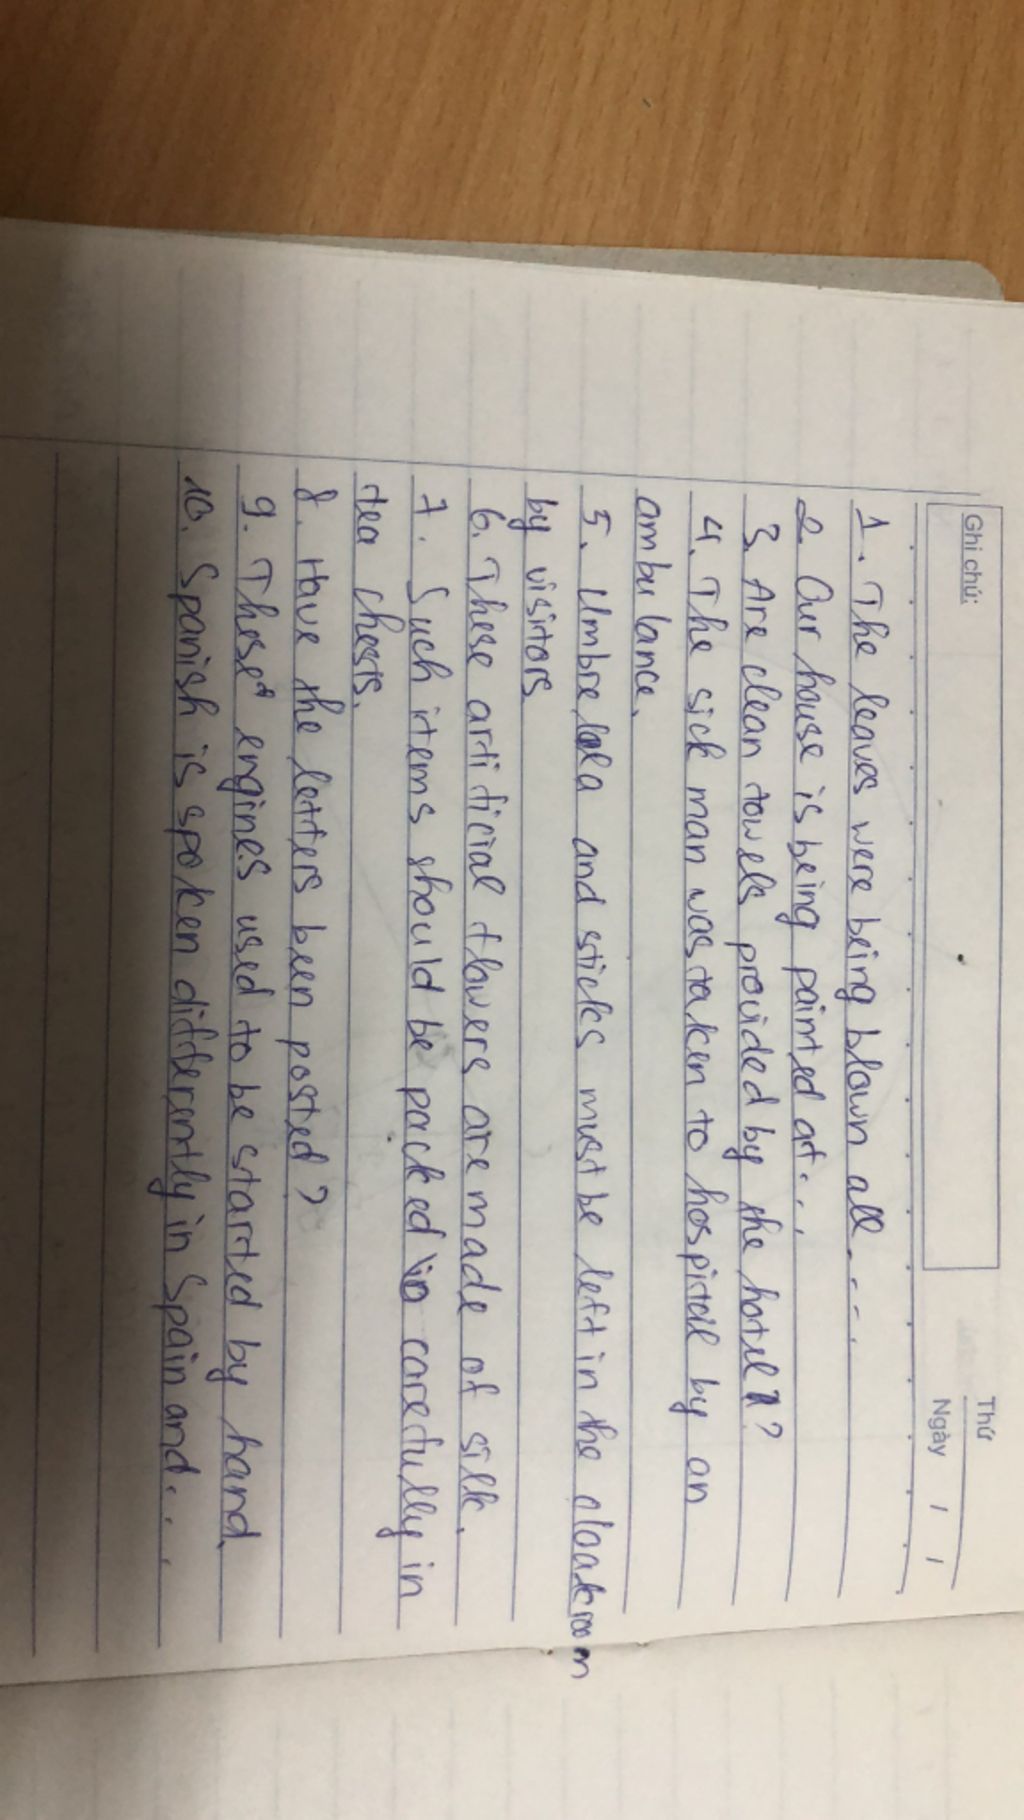 Ghi chú:
Thứ
Ngày / /
1. The leaves were being blown all.....
2. Our house is being painted at....
3. Are clean towels provided by the hotel?
4. The sick man was taken to hospital by an
ambulance.
5. Umbrella and sticks must be left in the cloakroom
by visitors.
6. These artificial flowers are made of silk.
7. Such items should be packed carefully in
tea chests.
8. Have the letters been posted?
9. These engines used to be started by hand.
10. Spanish is spoken differently in Spain and....